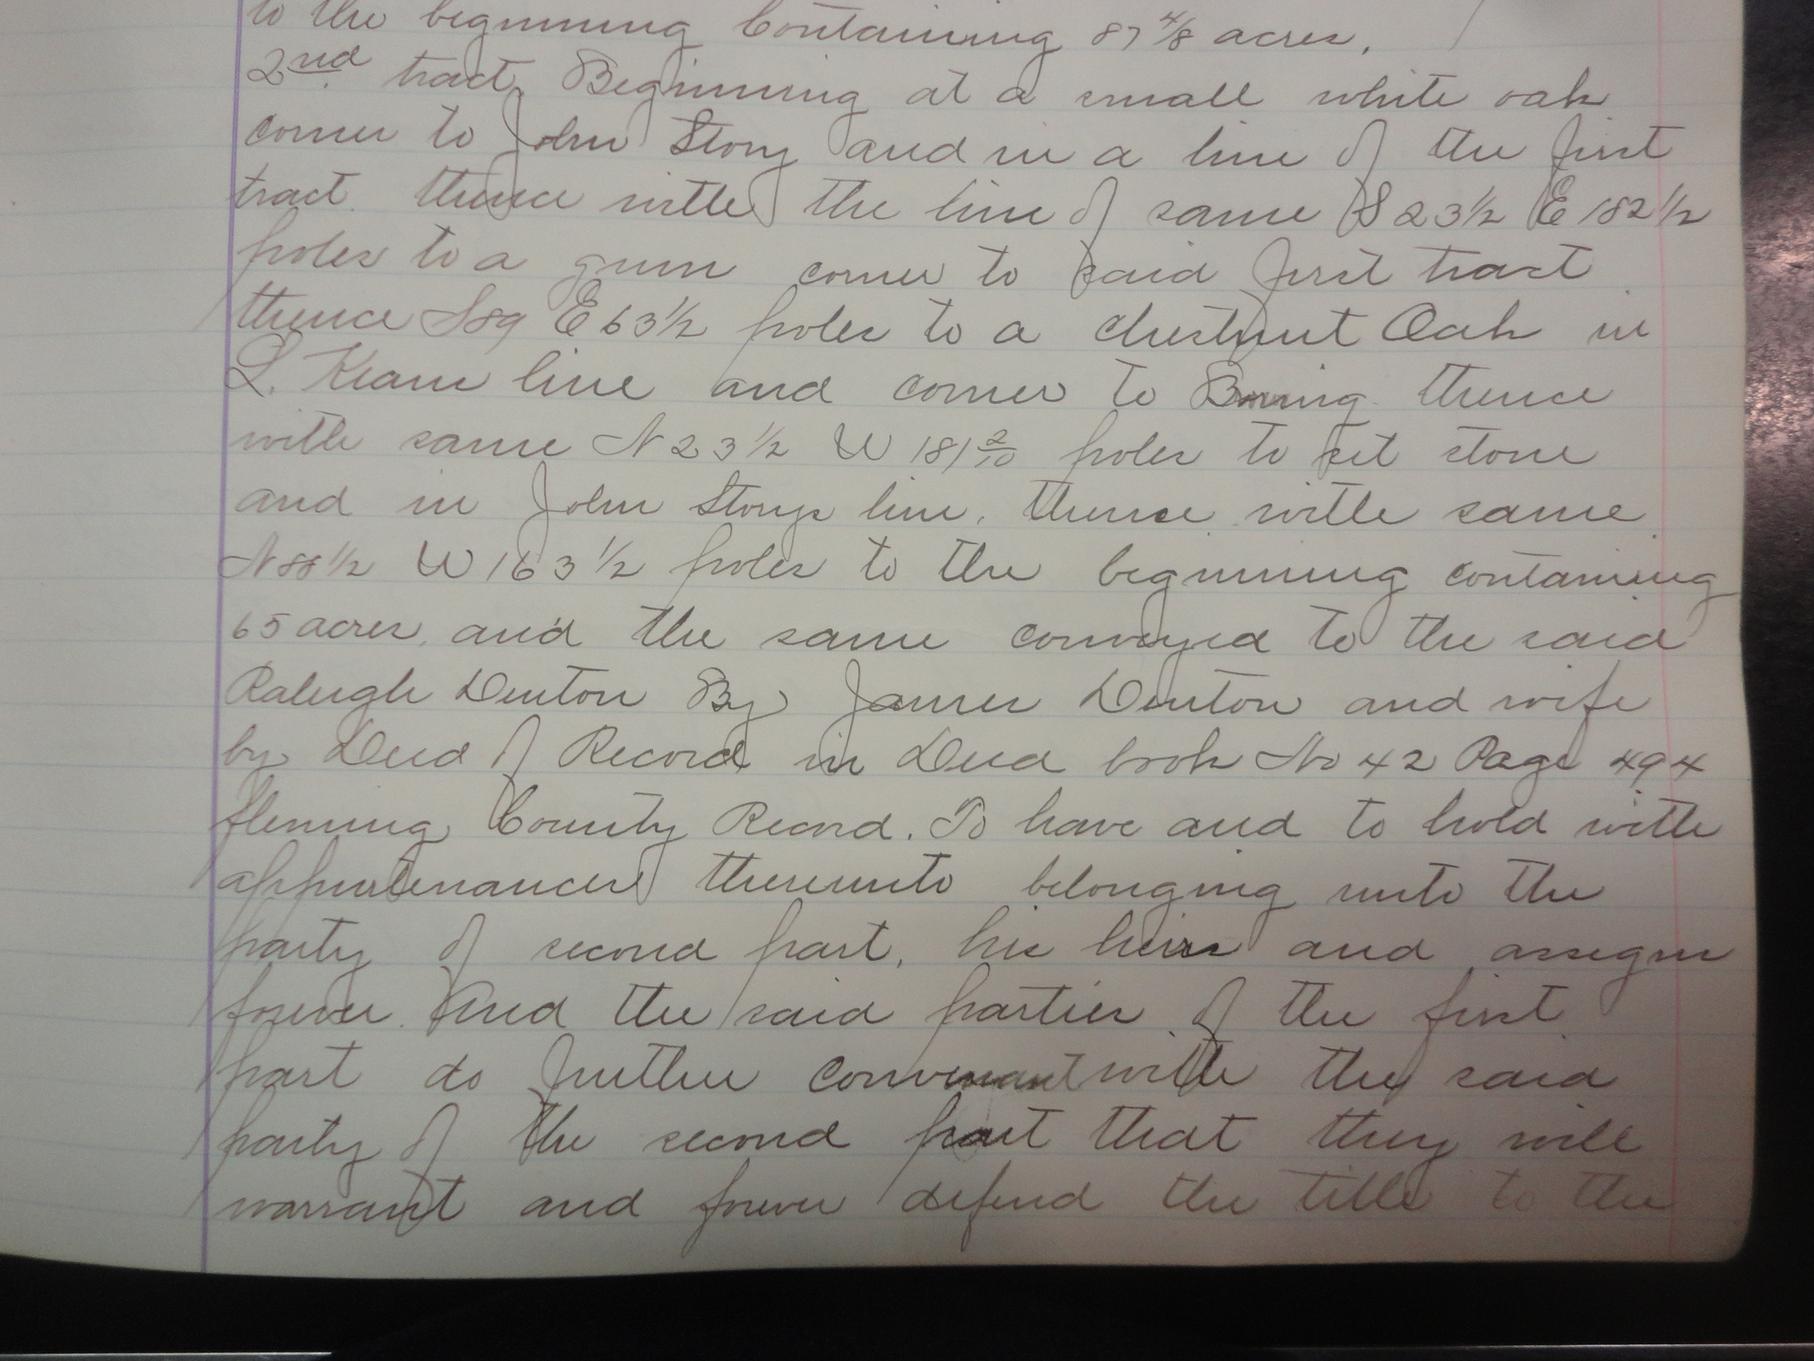 to the beginning Containing 87 4/8 acres,
2nd tract, Beginning at a small white oak
corner to John Story and in a line of the first
tract thence with the line of same S 23½ E 182½
poles to a gum corner to said first tract
thence S89 E 63½ poles to a chestnut Oak in
L. line and corner to thence
with same N 23½ W 181 2/10 poles to set stone
and in John Storys line, thence with same
N 88½ W 163½ poles to the beginning containing
65 acres, and the same conveyed to the said
Raleigh Denton By James Denton and wife
by Deed of Record in Deed book No 42 Page 494
fleming County Record. To have and to hold with
appurtenances thereunto belonging unto the
party of second part, his heirs and assigns
forever. And the said parties of the first
part do further convenant with the said
party of the second part that they will
warrant and forever defend the title to the